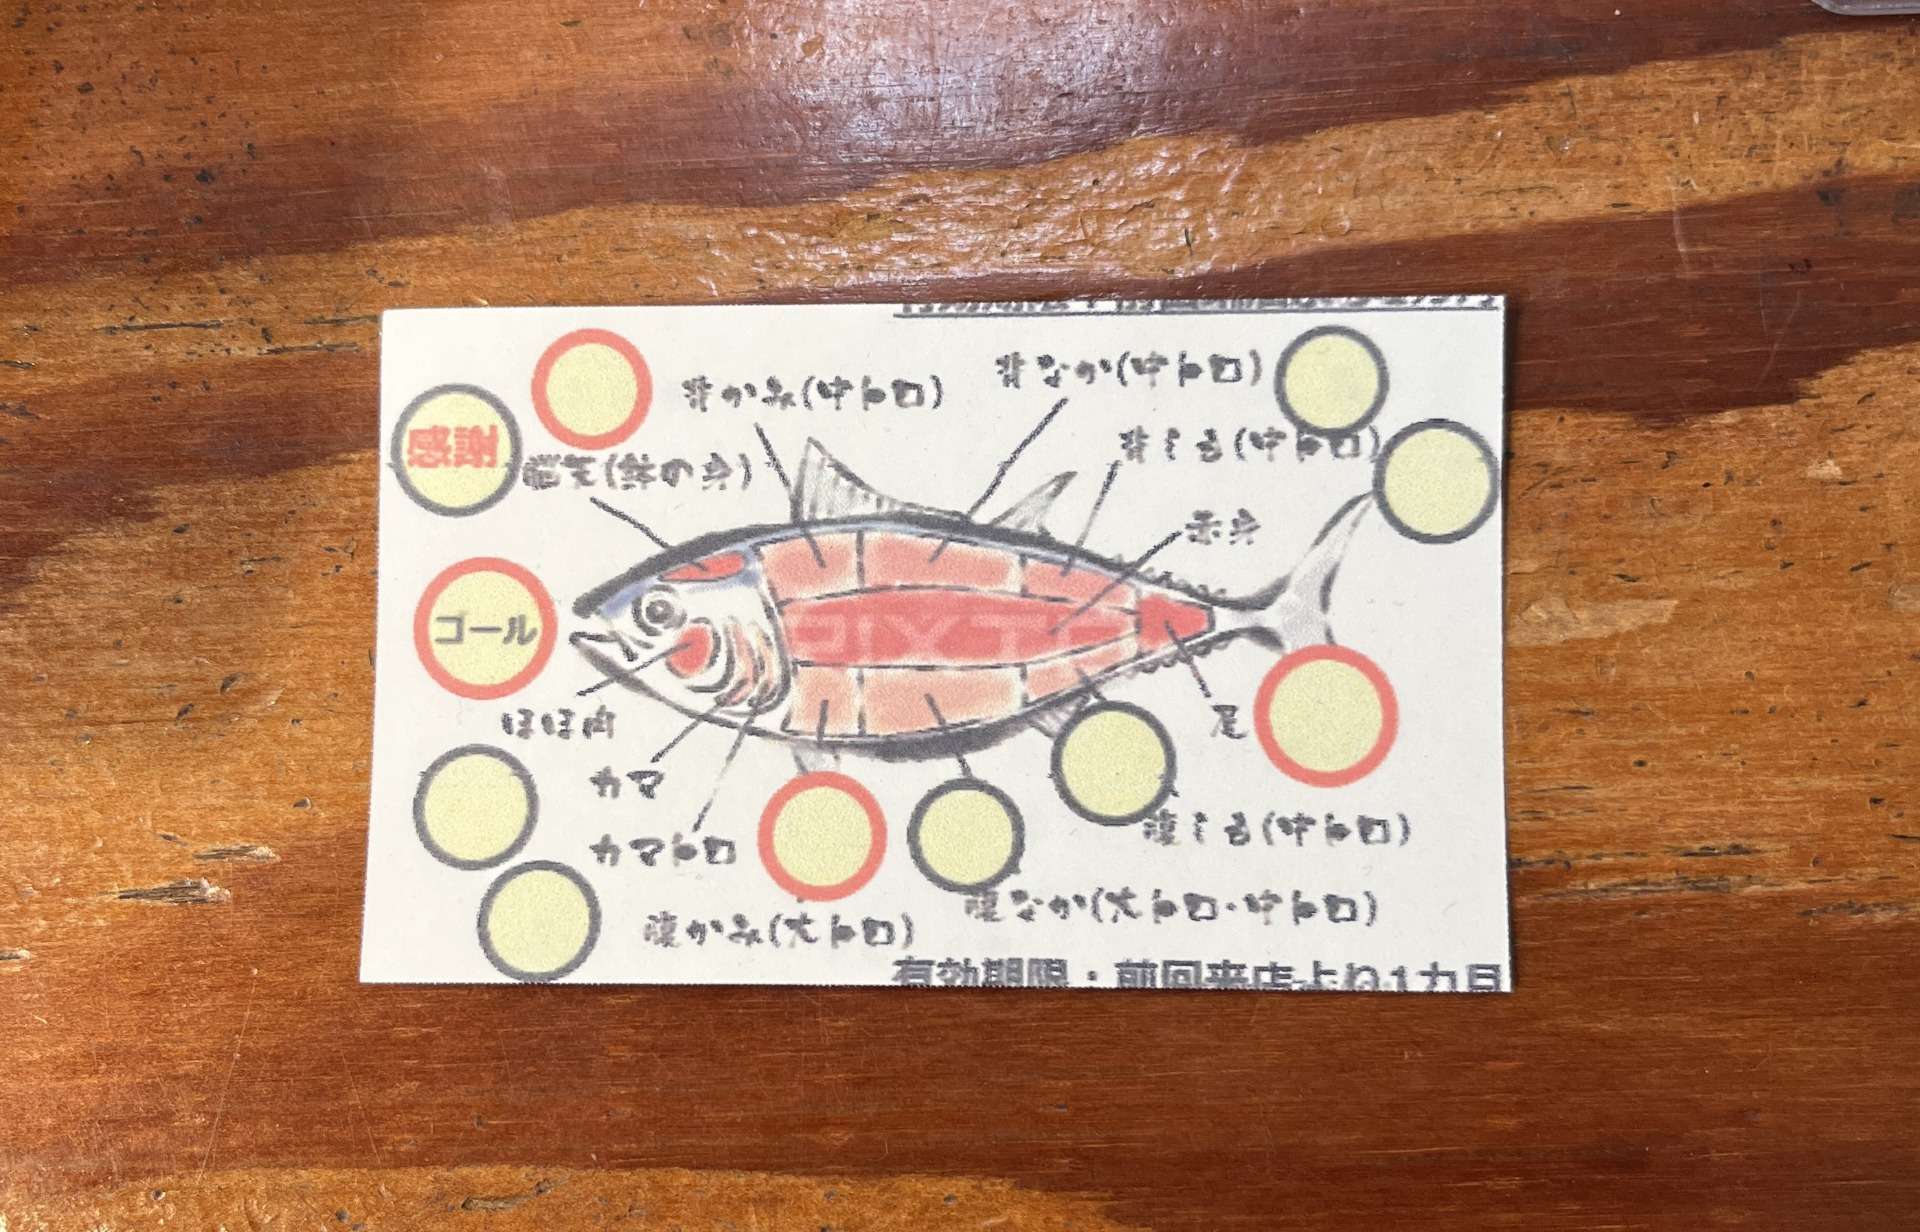 背なか(中トロ)
背かみ(中トロ)
感謝
背しも(中トロ)
脳天(鉢の身)
赤身
ゴール
PIXTA
ほほ肉
足
カマ
腹しも(中トロ)
カマトロ
腹なか(大トロ・中トロ)
腹かみ(大トロ)
有効期限・前回来店より1カ月